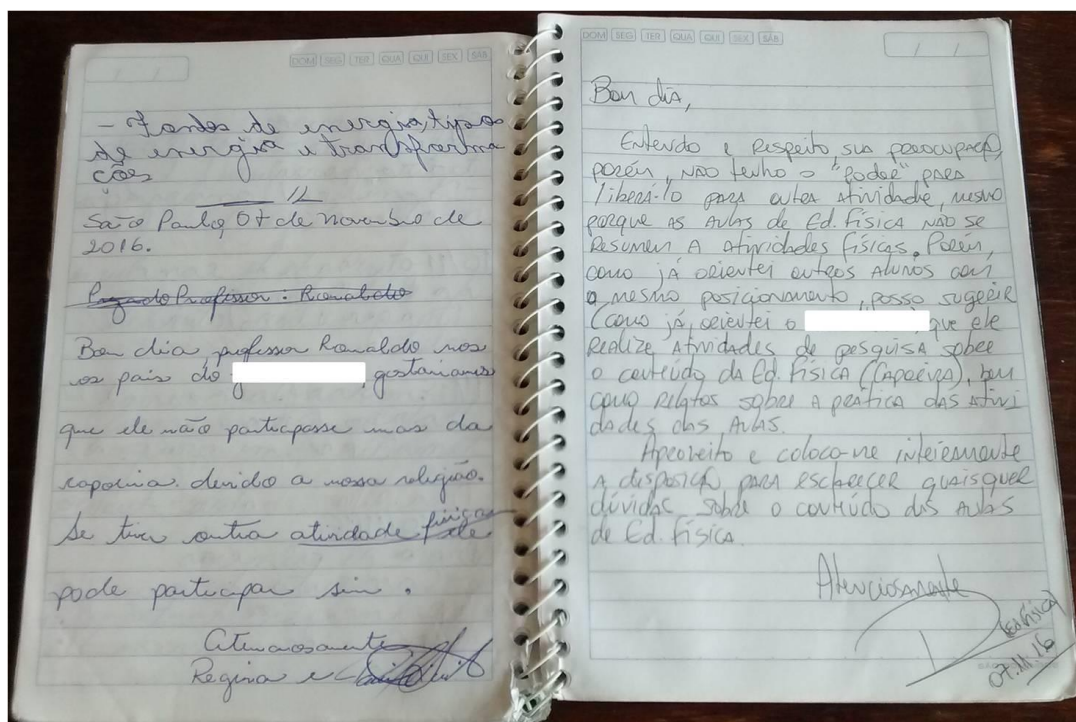 DOM SEG TER QUA QUI SEX SÁB
- Fontes de energia, tipos
de energia e transforma
ções
São Paulo, 07 de novembro de
2016.
Professor: Ronaldo
Bom dia, professor Ronaldo nos
os pais do , gostariamos
que ele não participasse mas da
capoeira devido a nossa religião.
Se tiver outra atividade física ele
pode participar sim.
Atenciosamente
Regina e
DOM SEG TER QUA QUI SEX SÁB
Bom dia,
Entendo e respeito sua preocupação,
porém, não tenho o "poder" para
liberá-lo para outra atividade, mesmo
porque as aulas de Ed. Física não se
resumem a atividades físicas. Porém,
como já orientei outros alunos com
o mesmo posicionamento, posso sugerir
(como já orientei o , que ele
realize atividades de pesquisa sobre
o conteúdo da Ed. Física (Capoeira), bem
como relatos sobre a prática das ativi
dades das aulas.
Aproveito e coloco-me inteiramente
a disposição para esclarecer quaisquer
dúvidas sobre o conteúdo das aulas
de Ed. Física.
Atenciosamente
(Ed. Física)
07.11.16